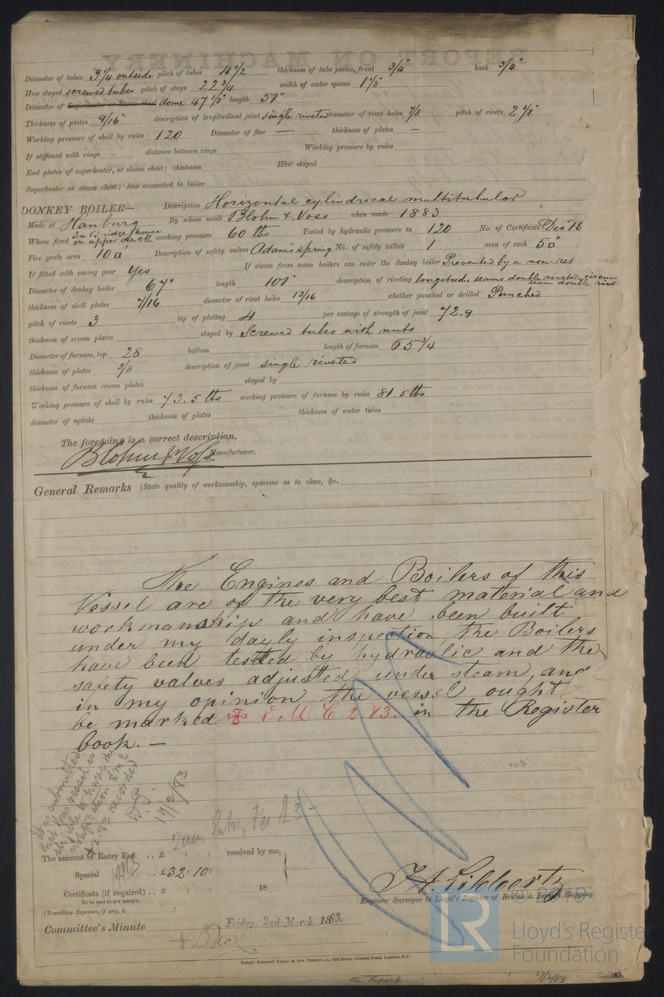 Diameter of tubes 3 1/4 outside pitch of tubes 4 1/2 thickness of tube plates, front 3/4" back 3/4"
How stayed screwed tubes pitch of stays 22 3/4 width of water spaces 1 1/8"
Diameter of dome 47 5/8" length 51"
Thickness of plates 9/16" description of longitudinal joint single riveted diameter of rivet holes 7/8 pitch of rivets 2 3/8"
Working pressure of shell by rules 120 Diameter of flue — thickness of plates —
If stiffened with rings — distance between rings Working pressure by rules
End plates of superheater, or steam chest; thickness How stayed
Superheater or steam chest; how connected to boiler
DONKEY BOILER— Description Horizontal cylindrical multitubular
Made at Hamburg By whom made Blohm & Voss when made 1883
Where fixed on upper deck working pressure 60 lbs Tested by hydraulic pressure to 120 No. of Certificate
Fire grate area 10 □ Description of safety valves Adam's spring No. of safety valves 1 area of each 5 □"
If fitted with easing gear Yes If steam from main boilers can enter the donkey boiler Prevented by a non-ret
Diameter of donkey boiler 67" length 101" description of riveting longitud. seams double riveted, circum seam double rive
thickness of shell plates 7/16 diameter of rivet holes 13/16 whether punched or drilled Punched
pitch of rivets 3 lap of plating 4 per centage of strength of joint 72.9
thickness of crown plates stayed by Screwed tubes with nuts
Diameter of furnace, top 28 bottom length of furnace 65 3/4
thickness of plates 3/8 description of joint single riveted
thickness of furnace crown plates stayed by
Working pressure of shell by rules 72.5 lbs working pressure of furnace by rules 81.5 lbs
diameter of uptake thickness of plates thickness of water tubes
The foregoing is a correct description,
Blohm & Voss Manufacturer.
General Remarks (State quality of workmanship, opinions as to class, &c.
The Engines and Boilers of this
Vessel are of the very best material and
workmanship and have been built
under my dayly inspection the Boilers
have been tested by hydraulic and the
safety valves adjusted under steam, and
in my opinion the vessel ought
be marked L M C 2 83. in the Register
book. —
19/2/83
The amount of Entry Fee .. £ : : received by me,
Special .. £32 : 10 :
Certificate (if required) .. £ : : 18
To be sent as per margin.
(Travelling Expenses, if any, £
Engineer Surveyor to Lloyd's Register of British & Foreign Shipping
Committee's Minute Friday, 2nd March, 1883.
Lloyd's Register
Foundation